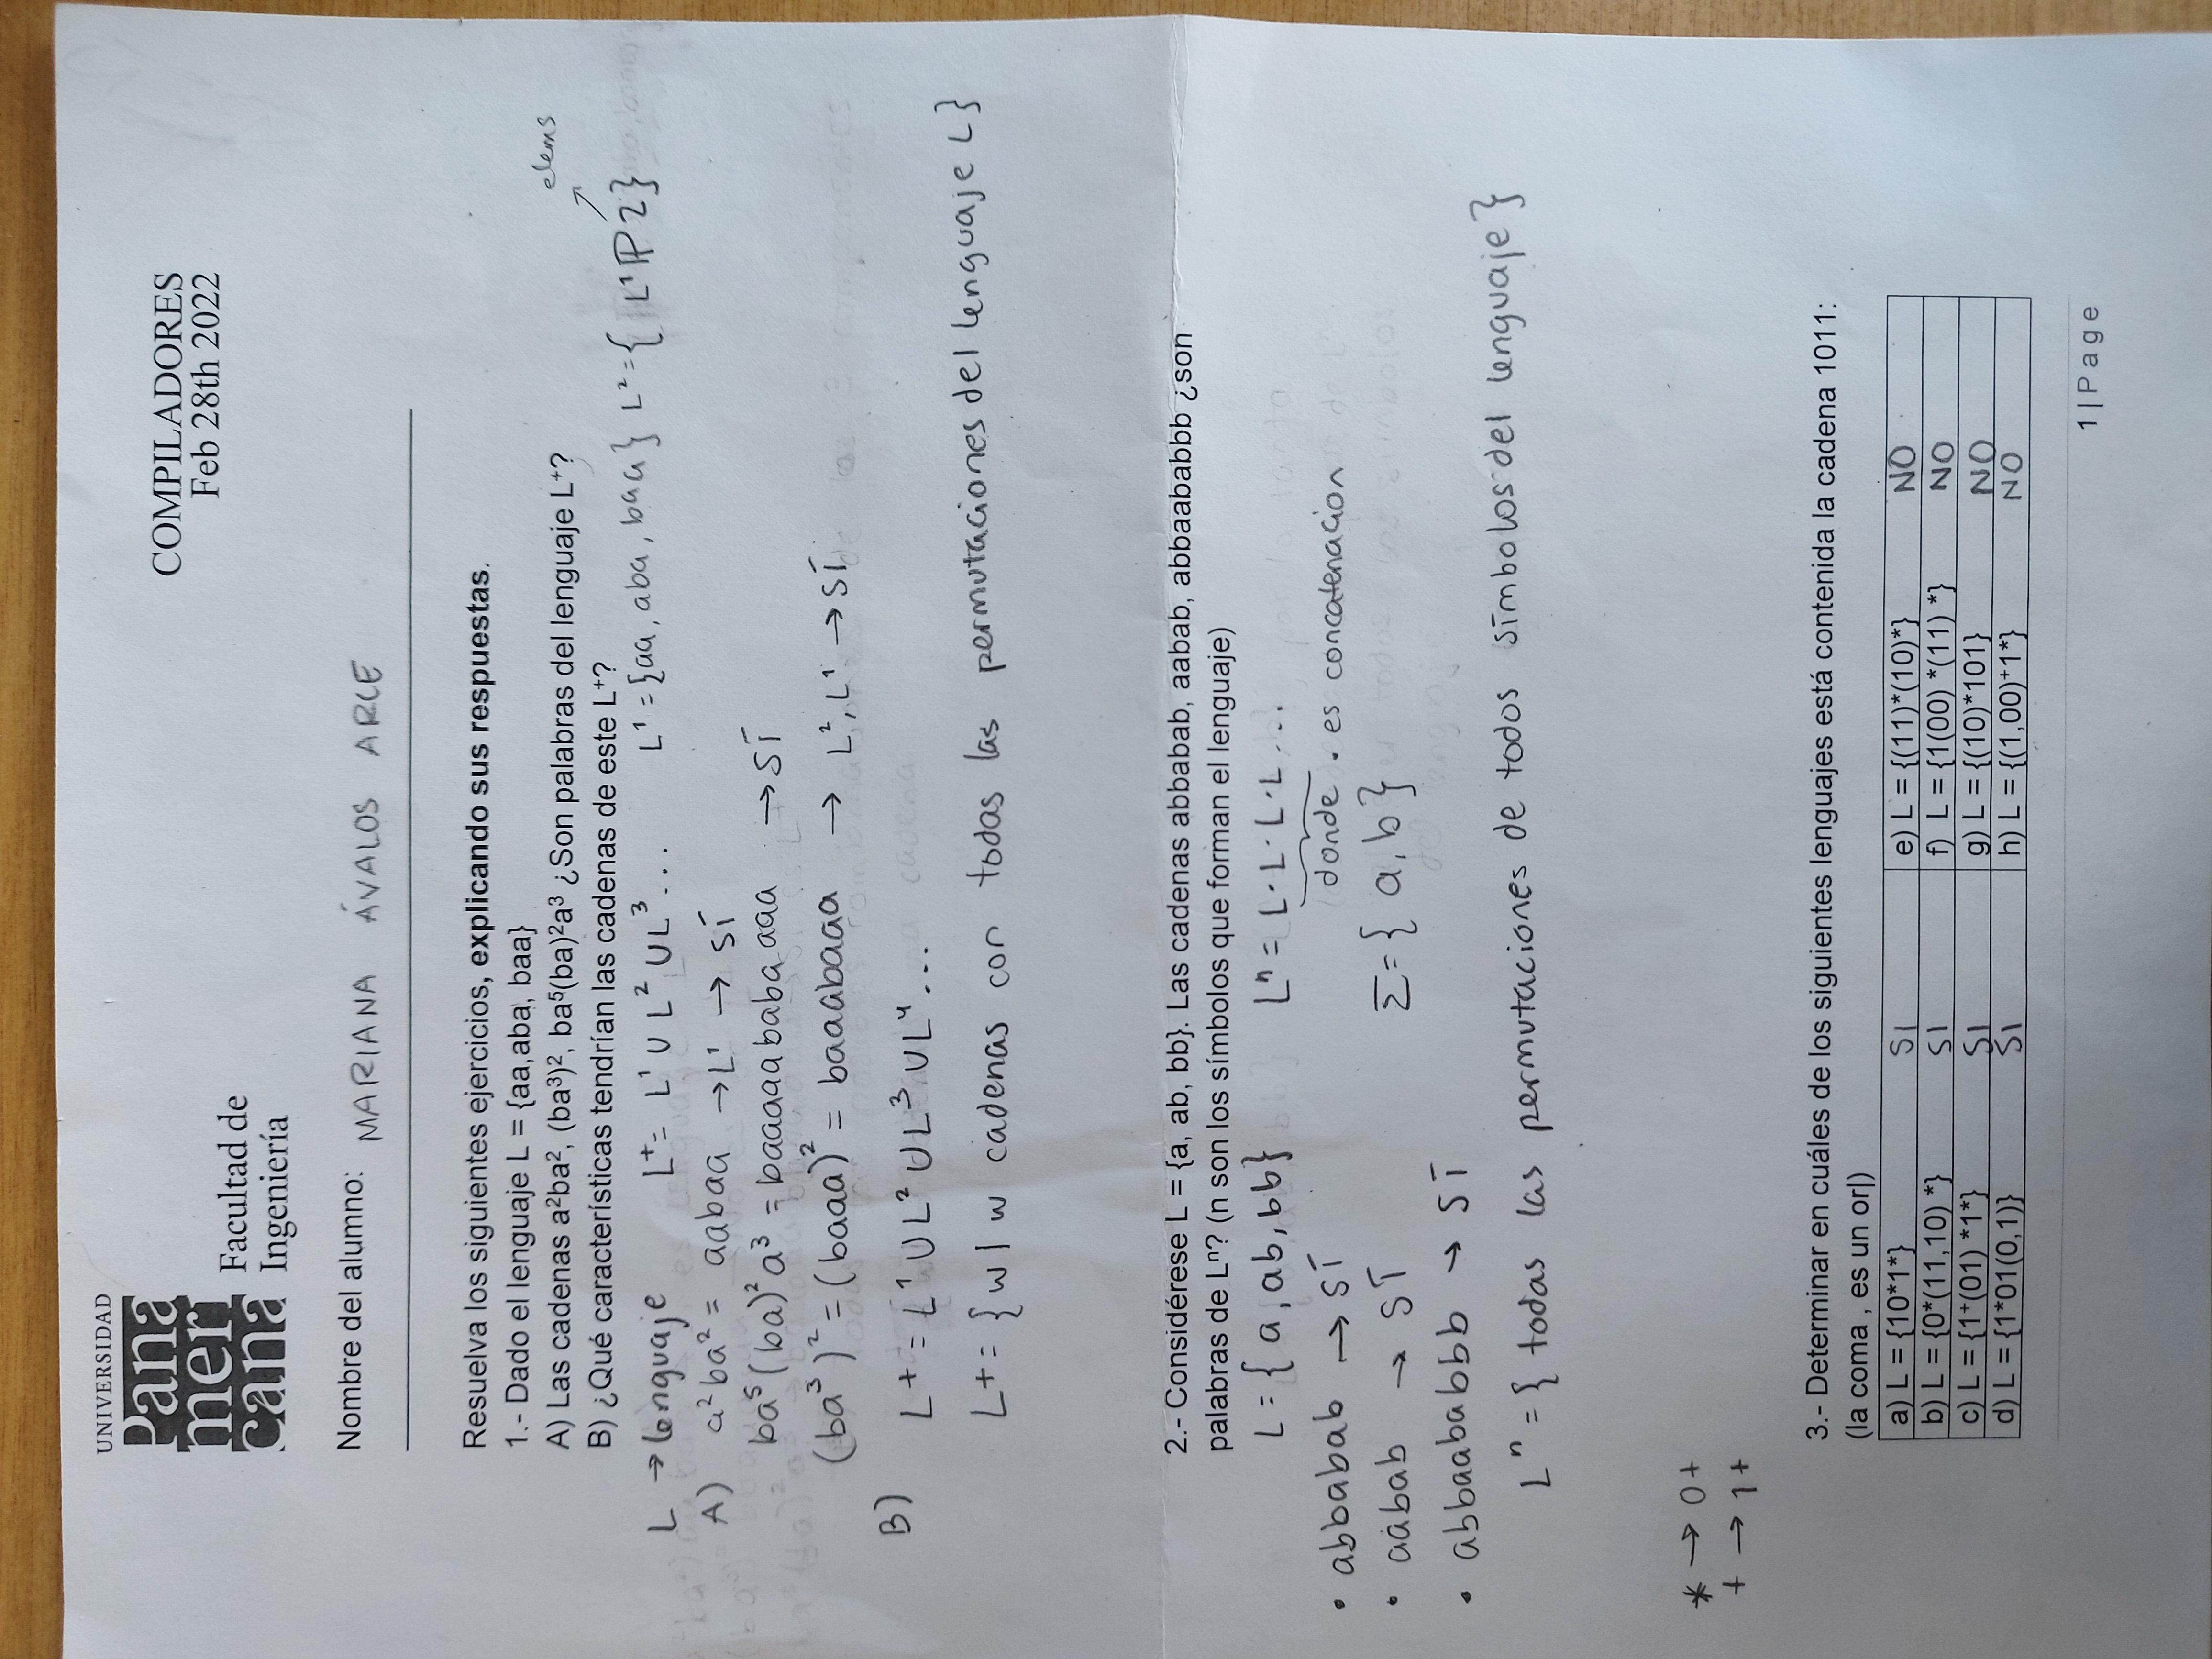 UNIVERSIDAD
Pana
meri
cana
Facultad de
Ingeniería
COMPILADORES
Feb 28th 2022
Nombre del alumno: MARIANA ÁVALOS ARCE
Resuelva los siguientes ejercicios, explicando sus respuestas.
1.- Dado el lenguaje L = {aa,aba, baa}
A) Las cadenas a²ba², (ba³)², ba⁵(ba)²a³ ¿Son palabras del lenguaje L⁺?
B) ¿Qué características tendrían las cadenas de este L⁺?
elems
L → lenguaje L⁺= L¹ ∪ L² ∪ L³... L¹ = {aa, aba, baa} L² = { L¹ ℙ 2}
A) a²ba² = aabaa → L¹ → SÍ
ba⁵(ba)²a³ = baaaaababaaaa → SÍ
(ba³)² = (baaa)² = baaabaaa → L², L¹ → SÍ
B) L+ = L¹ ∪ L² ∪ L³ ∪ L⁴...
L+ = {w | w cadenas con todas las permutaciones del lenguaje L}
2.- Considérese L = {a, ab, bb}. Las cadenas abbabab, aabab, abbaababbb ¿son
palabras de Lⁿ? (n son los símbolos que forman el lenguaje)
L = { a, ab, bb} Lⁿ = L·L·L·L...
donde · es concatenacion
• abbabab → SÍ
• aabab → SÍ Σ = { a, b}
• abbaababbb → SÍ
Lⁿ = { todas las permutaciones de todos símbolos del lenguaje}
* → 0+
+ → 1+
3.- Determinar en cuáles de los siguientes lenguajes está contenida la cadena 1011:
(la coma , es un or|)
a) L = {10*1*} SI e) L = {(11)*(10)*} NO
b) L = {0*(11,10) *} SI f) L = {1(00) *(11) *} NO
c) L = {1⁺(01) *1*} SI g) L = {(10)*101} NO
d) L = {1*01(0,1)} SI h) L = {(1,00)⁺1*} NO
1 | Page